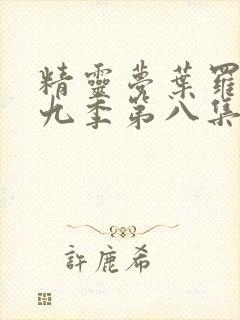 精靈夢葉羅
九季第八集
許鹿希